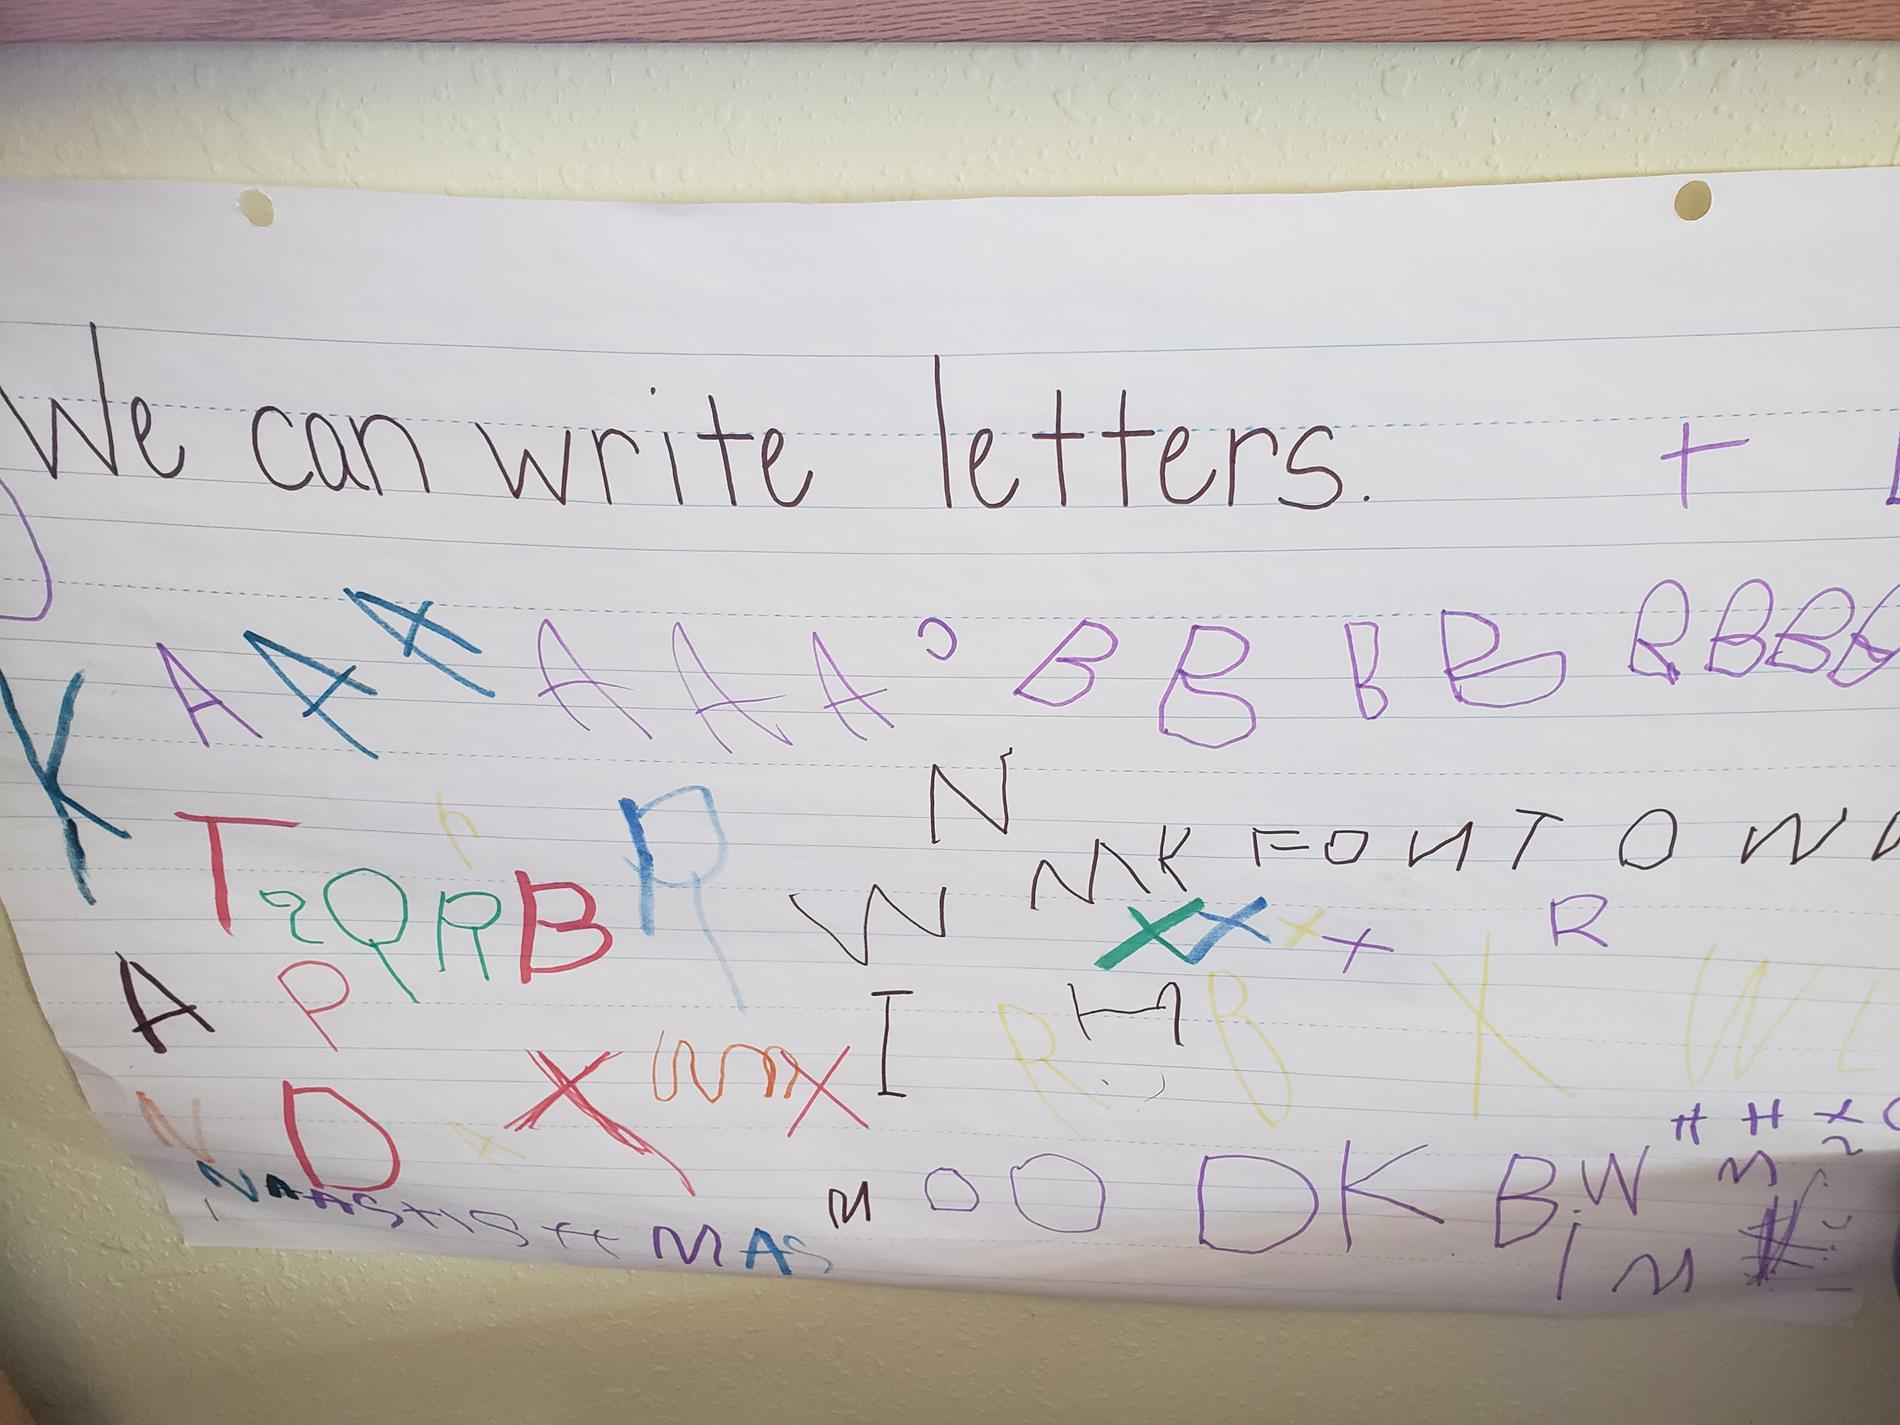 We can write letters.
t
K A A A A A A B B B B R B B B
N
T Q R B R W M K F O N T O W
X X X X R
A P I R H B X W L
N D A X X
H H X
N M A S M O O D K B W M
i M